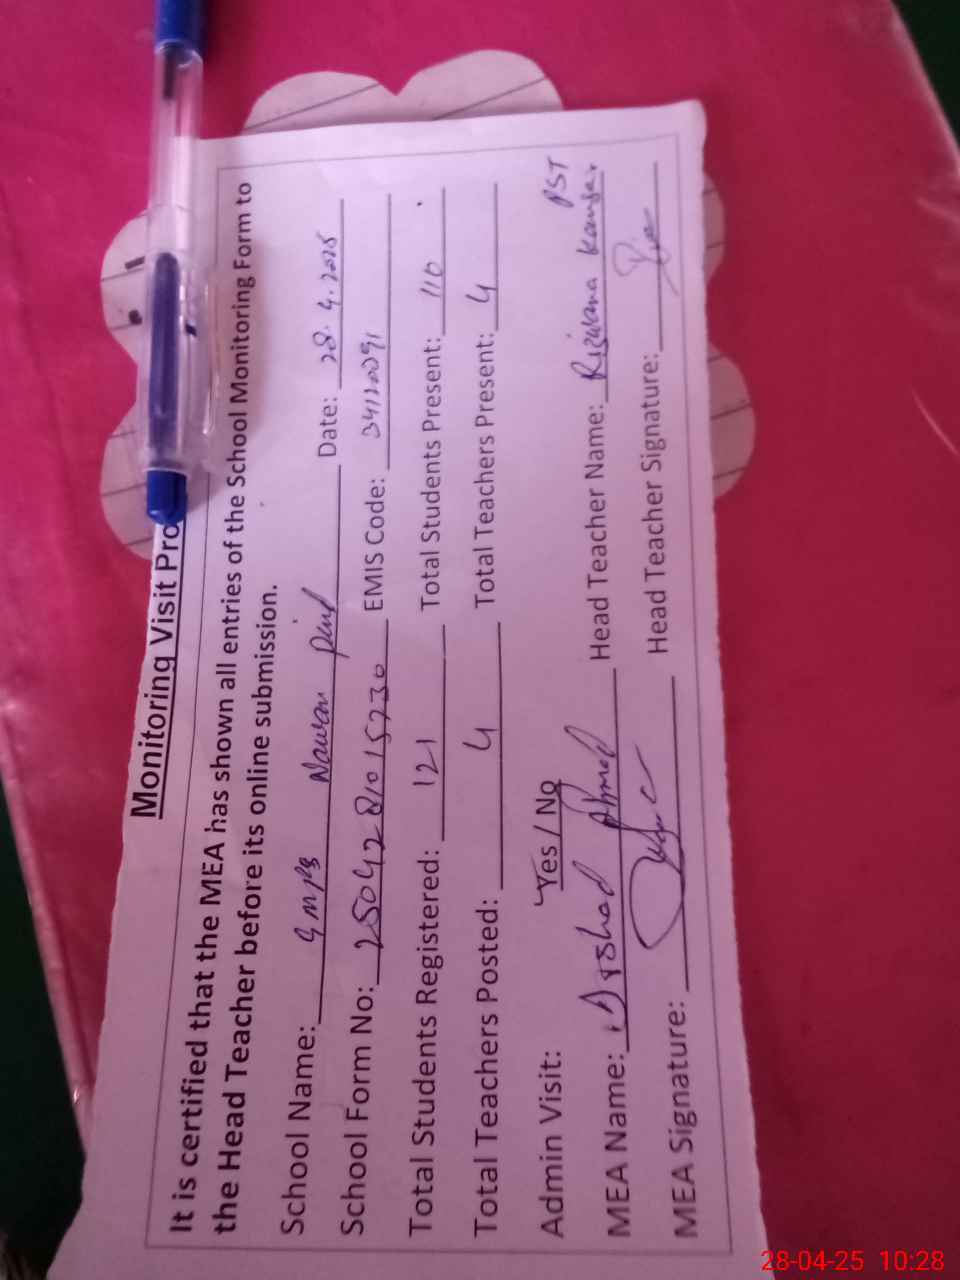 Monitoring Visit Pro
It is certified that the MEA has shown all entries of the School Monitoring Form to
the Head Teacher before its online submission.
School Name: GMPS Nawan Date: 28.4.2025
School Form No: 2504281015730 EMIS Code: 34120091
Total Students Registered: 121 Total Students Present: 110
Total Teachers Posted: 4 Total Teachers Present: 4
Admin Visit: Yes / No
MEA Name: Arshad Ahmed Head Teacher Name: Rizwana Kausar PST
MEA Signature: Head Teacher Signature:
28-04-25 10:28